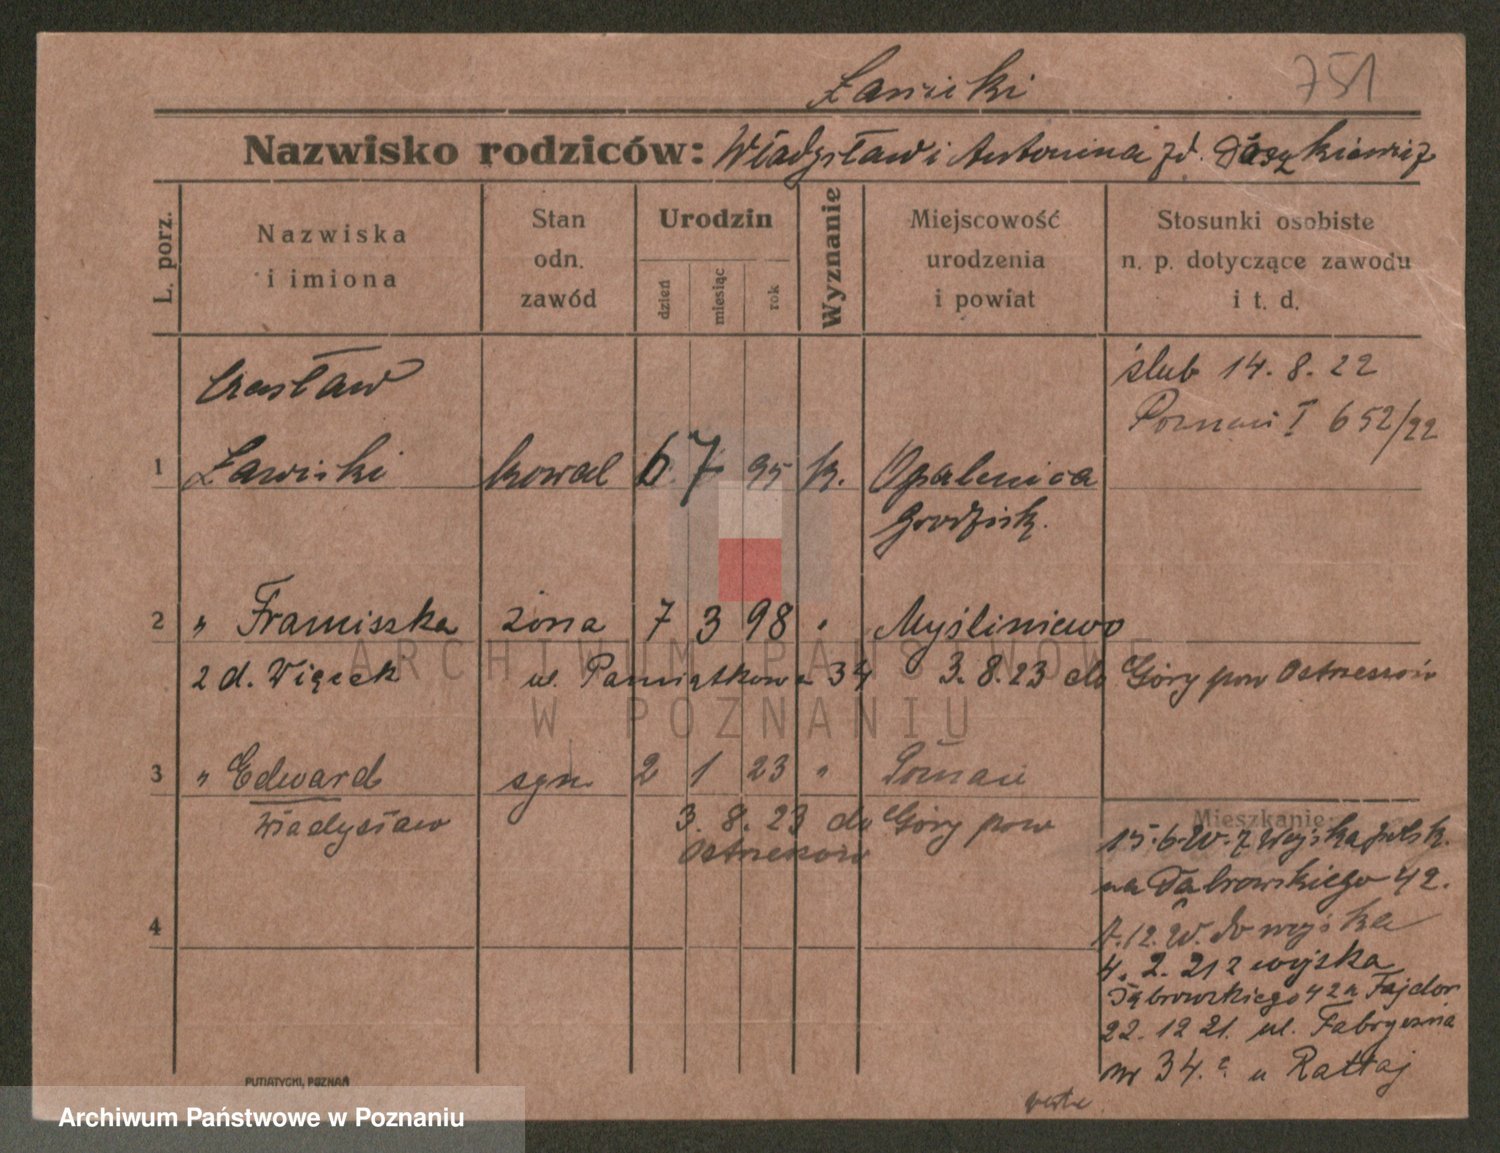 Ławicki
751
Nazwisko rodziców: Władysław i Antonina zd. Daszkiewicz
L. porz.
Nazwiska
i imiona
Stan
odn.
zawód
Urodzin
dzień
miesiąc
rok
Wyznanie
Miejscowość
urodzenia
i powiat
Stosunki osobiste
n. p. dotyczące zawodu
i t. d.
Czesław
ślub 14. 8. 22
Poznań I 652/22
1 Ławicki kowal 6. 7 95 k. Opalenica
Grodzisk.
2 " Franciszka żona 7 3 98 " Myśliniewo
zd. Więcek ul. Pamiątkowa 34 3. 8. 23 do Góry pow Ostrzeszów
3 " Edward syn 2 1 23 " Poznań
Władysław 3. 8. 23 do Góry pow
Ostrzeszów
Mieszkanie:
15. 6. 20. z Wojska polsk.
na Dąbrowskiego 42.
12. 20. do wojska
4. 2. 21 z wojska
Dąbrowskiego 42 u Fajdor
22. 12 21. ul. Fabryczna
nr 34. u Rattaj
4
PUTIATYCKI, POZNAŃ
ARCHIWUM PAŃSTWOWE
W POZNANIU
Archiwum Państwowe w Poznaniu